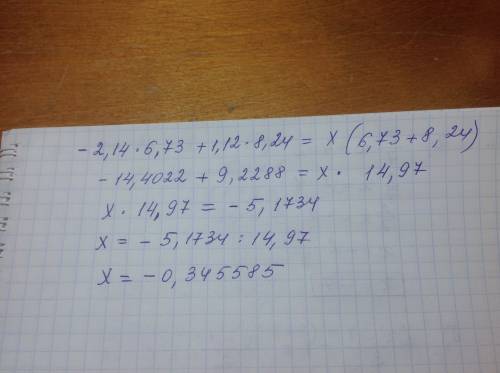 - 2,14 · 6,73 + 1,12 · 8,24 = x (6,73 + 8,24)
- 14,4022 + 9,2288 = x · 14,97
x · 14,97 = - 5,1734
x = - 5,1734 : 14,97
x = - 0,345585